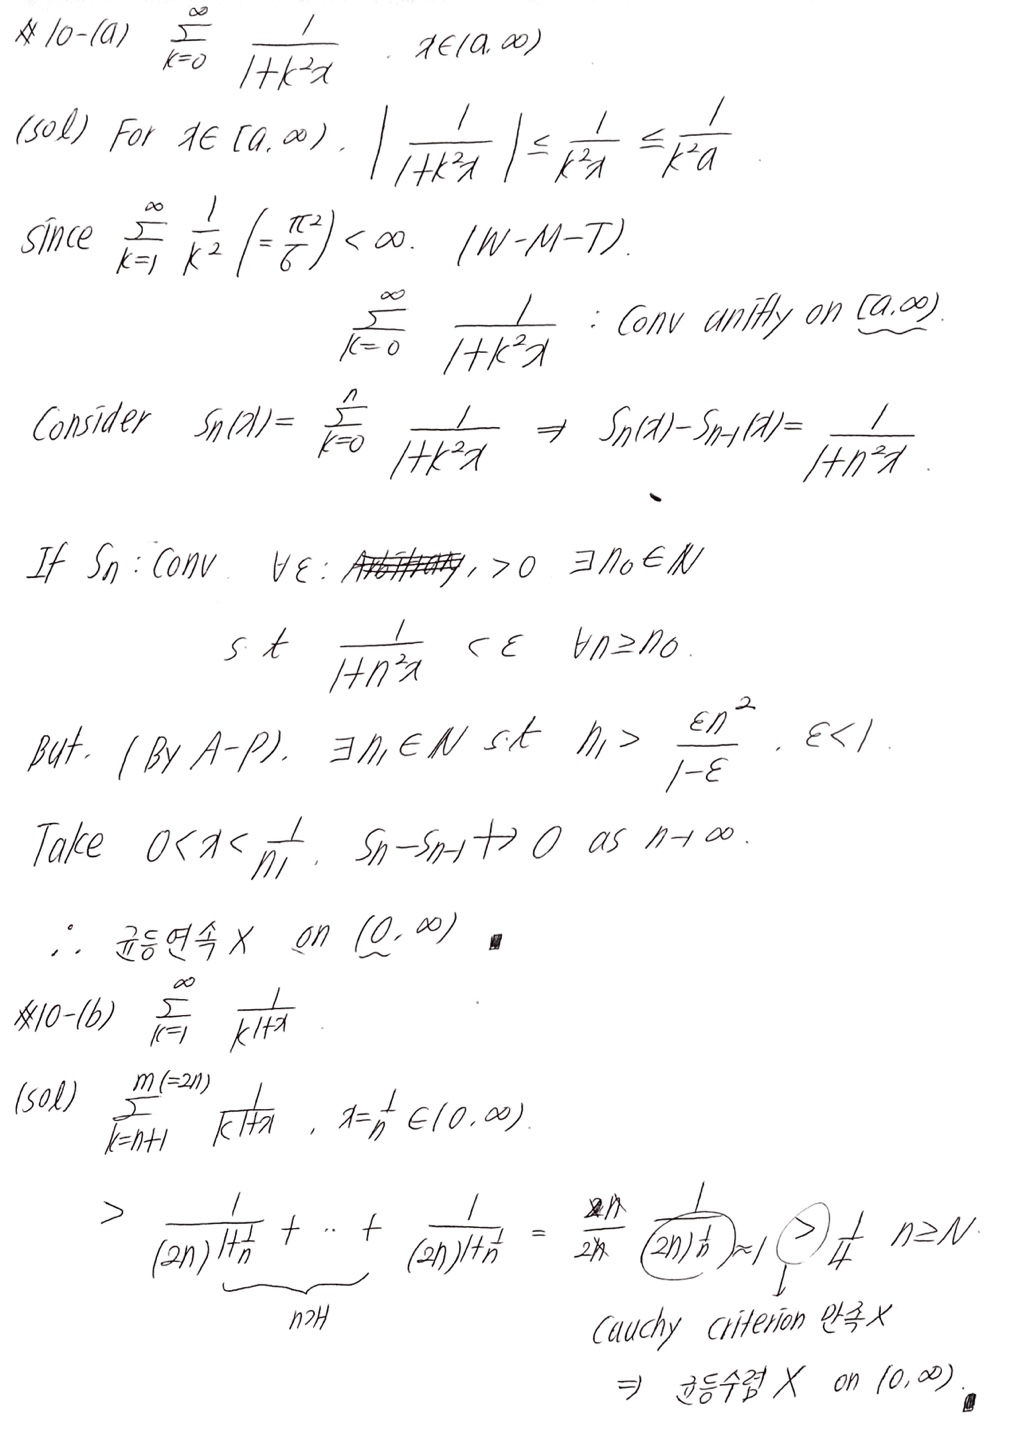 # 10-(a) ∞ Σ k=0 1/(1+k²x) . x∈(a, ∞)
(sol) For x∈[a, ∞). |1/(1+k²x)| ≤ 1/(k²x) ≤ 1/(k²a) .
since ∞ Σ k=1 1/k² (= π²/6) < ∞. (W-M-T).
∞ Σ k=0 1/(1+k²x) : Conv unifly on [a,∞).
Consider Sn(x) = n Σ k=0 1/(1+k²x) ⇒ Sn(x)-Sn-1(x) = 1/(1+n²x) .
If Sn : Conv ∀ε : > 0 ∃n₀∈N
s.t 1/(1+n²x) < ε ∀n≥n₀.
But. (By A-P). ∃n₁∈N s.t n₁ > εn²/(1-ε) . ε<1.
Take 0<x<1/n₁. Sn-Sn-1 ↛ 0 as n→∞.
∴ 균등연속 X on (0, ∞) ∎
#10-(b) ∞ Σ k=1 1/k^(1+x) .
(sol) m(=2n) Σ k=n+1 1/k^(1+x) , x=1/n ∈(0, ∞).
> 1/(2n)^(1+1/n) + ·· + 1/(2n)^(1+1/n) = n/2n 1/(2n)^(1/n) ≈1 > 1/4 n≥N.
n개
Cauchy criterion 만족X
⇒ 균등수렴 X on (0, ∞). ∎